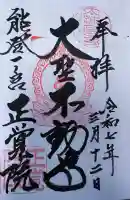 奉拝
令和七年三月十二日
大聖不動尊
能登一ノ宮
正覚院